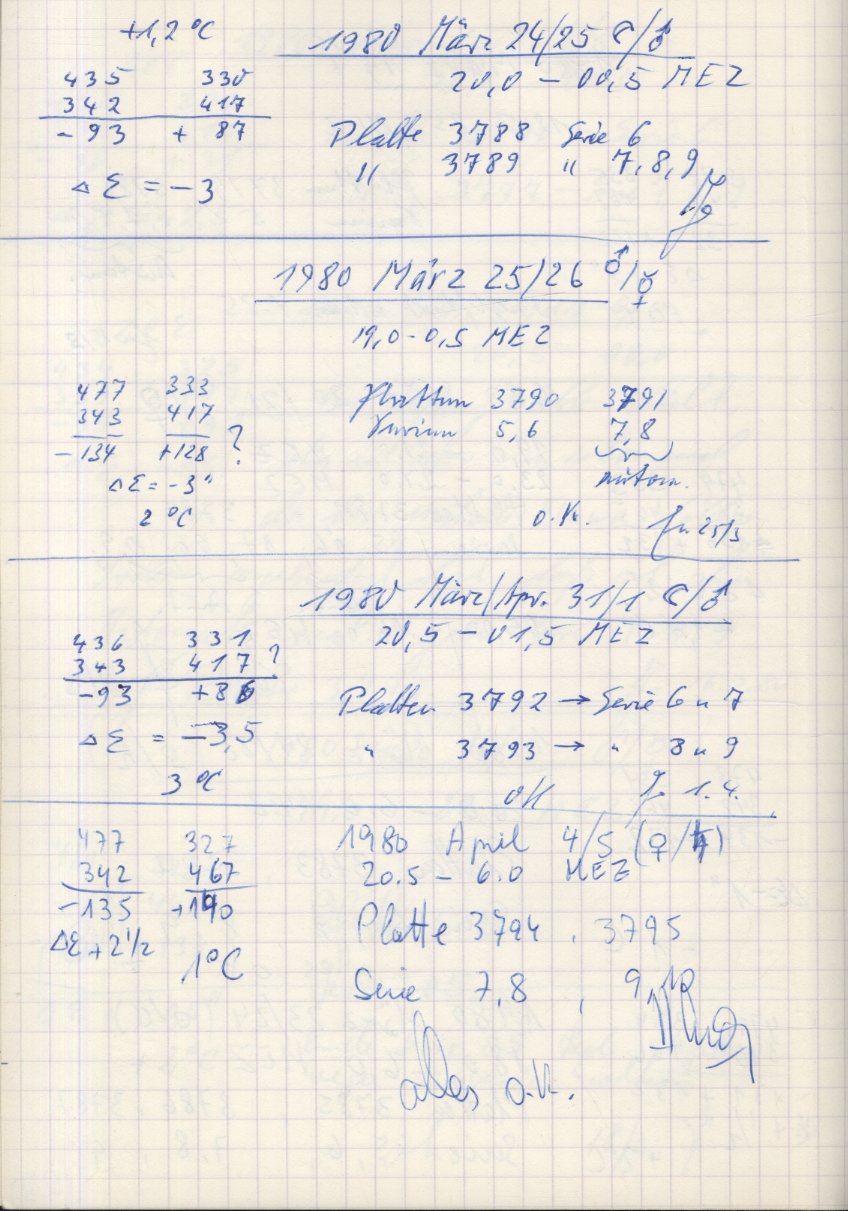 +1,2 °C
1980 März 24/25 ☾/♂
20,0 – 00,5 MEZ
435 330
342 417
-93 + 87
Δ Σ = -3
Platte 3788 Serie 6
" 3789 " 7,8,9
1980 März 25/26 ♂/☿
19,0-0,5 MEZ
477 333
343 417 ?
-134 +128
ΔΣ = -3"
2 °C
Platten 3790 3791
Serien 5,6 7,8
autom.
o.k. 25/3
1980 März/Apr. 31/1 ☾/♂
20,5 – 01,5 MEZ
436 331
343 417 ?
-93 +86
Δ Σ = -3,5
3 °C
Platten 3792 → Serie 6 u 7
" 3793 → " 8 u 9
OK 1.4.
477 327
342 467
-135 +140
ΔΣ +2 1/2
1°C
1980 April 4/5 (♀/♄)
20.5 – 6.0 MEZ
Platte 3794 , 3795
Serie 7,8 , 9,10
alles o.k.